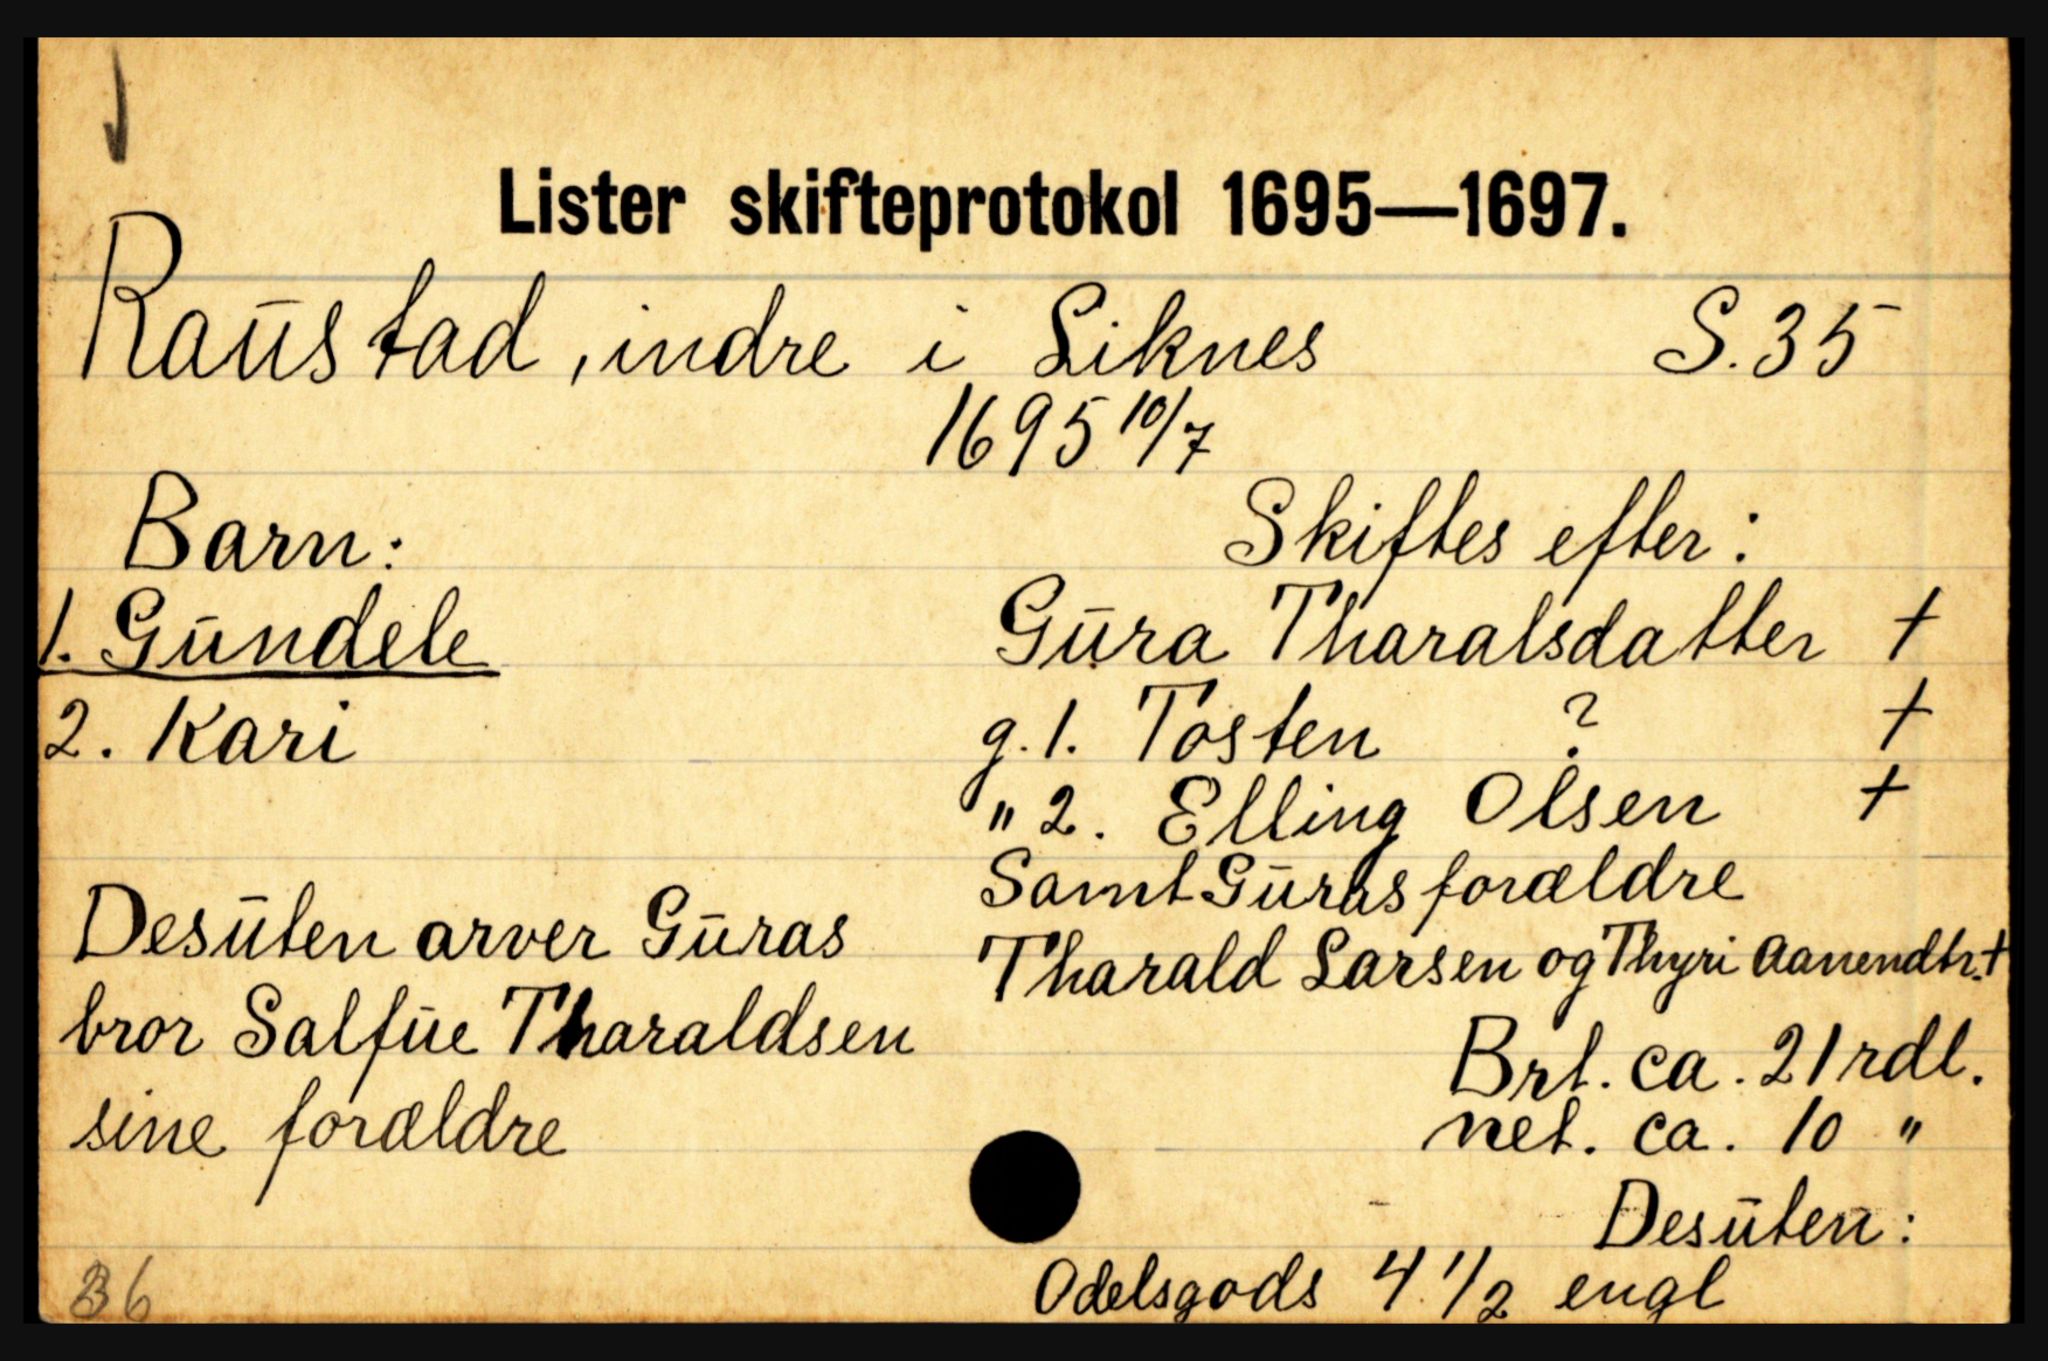 Lister skifteprotokol 1695—1697.
Raustad, indre i Liknes S. 35
1695 10/7
Barn:
1. Gundele
2. Kari
Desuten arver Guras
bror Salfue Tharaldsen
sine forældre
Skiftes efter:
Gura Tharalsdatter +
g. 1. Tosten ? +
" 2. Elling Olsen +
Samt Guras forældre
Tharald Larsen og Thyri Aanendtr. +
Brt. ca. 21 rdl.
net. ca. 10 "
Desuten:
Odelsgods 4 1/2 engl
36